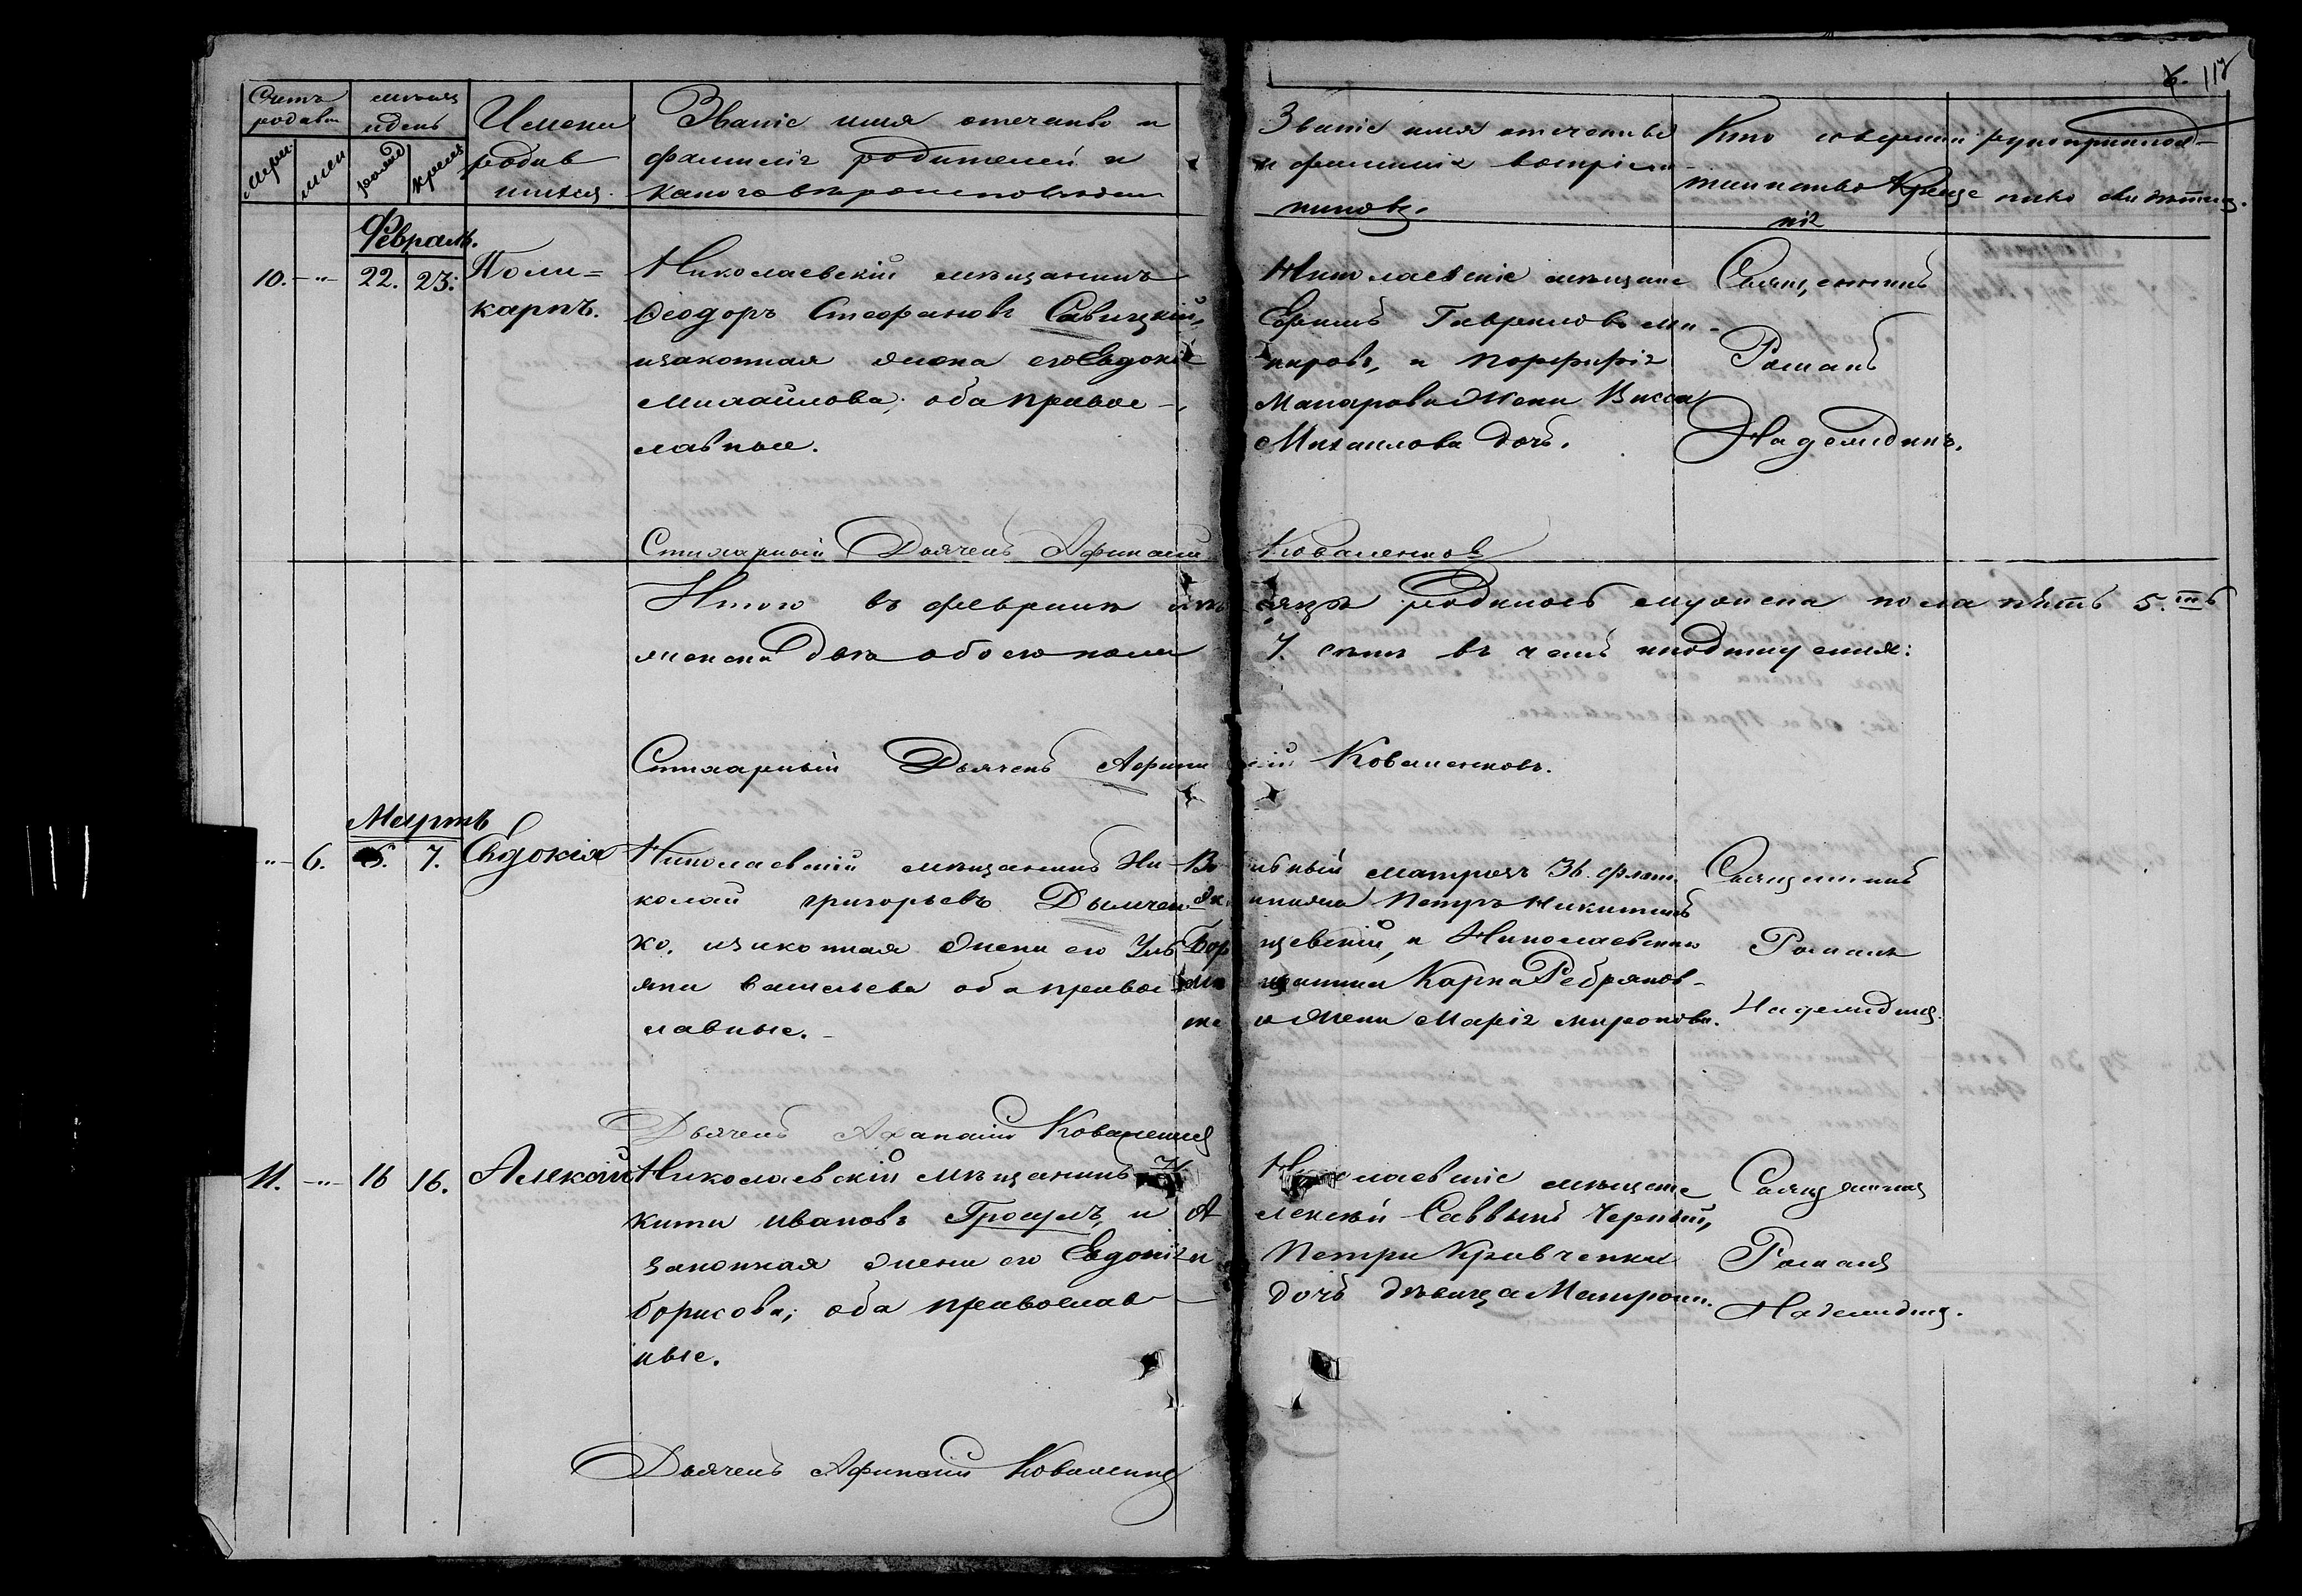 6. 117
Счетъ родивш
мѣсяц и день
Имена родив шихся.
Званіе имя отчество и
фамилія родителей и
какого вѣроисповѣден
Званіе имя отчество
и фамилія воспріем
никовъ.
Кто совершил
таинство Креще
нія
Февраль.
10. -"- 22. 23. Поли=
карпъ.
Николаевскій мѣщанинъ
Ѳеодоръ Стефановъ Савицкій,
изаконная жена его Евдокія
Михайлова; оба право-
славные.
Николаевскіе мѣщане
Ефимъ Гавриловъ
и Порфирія
Макарова жена Васса
Михаилова дочь.
Священникъ
Романъ
Надеждинъ.
Стихарный Дьячекъ Афанасій Коваленковъ
Итого въ февралѣ мѣсяцѣ родилось мужеска пола пять 5.ть
женска два обоего пола 7. семь въ чемъ и подпишуемся:
Стихарный Дьячекъ Афанасій Коваленковъ.
Мартъ
"- 6. 6. 7. Евдокія
Николаевскій мѣщанинъ Ни-
колай григорьевъ Дымчен-
ко. изаконная жена его Уль
яна васильева оба право
славные.-
матрозъ 36. флот.
экипажа Петръ Никитинъ
Борщевскій, и Николаевскаго
мѣщанина Карпа Ребряков-
жена Марія миронова.
Священникъ
Романъ
Надеждинъ.
Дьячекъ Афанасій Коваленковъ
11. -"- 16 16. Алексій
Николаевскій мѣщанинъ Ни
кита ивановъ Грощлъ, и
законная жена его Евдокія
борисова; оба православ-
ные.
Николаевскіе мѣщане
Алексѣй Саввинъ Черный,
и Петра Кравченка
дочь дѣвица Матрона.
Священникъ
Романъ
Надеждинъ.
Дьячекъ Афанасій Коваленковъ